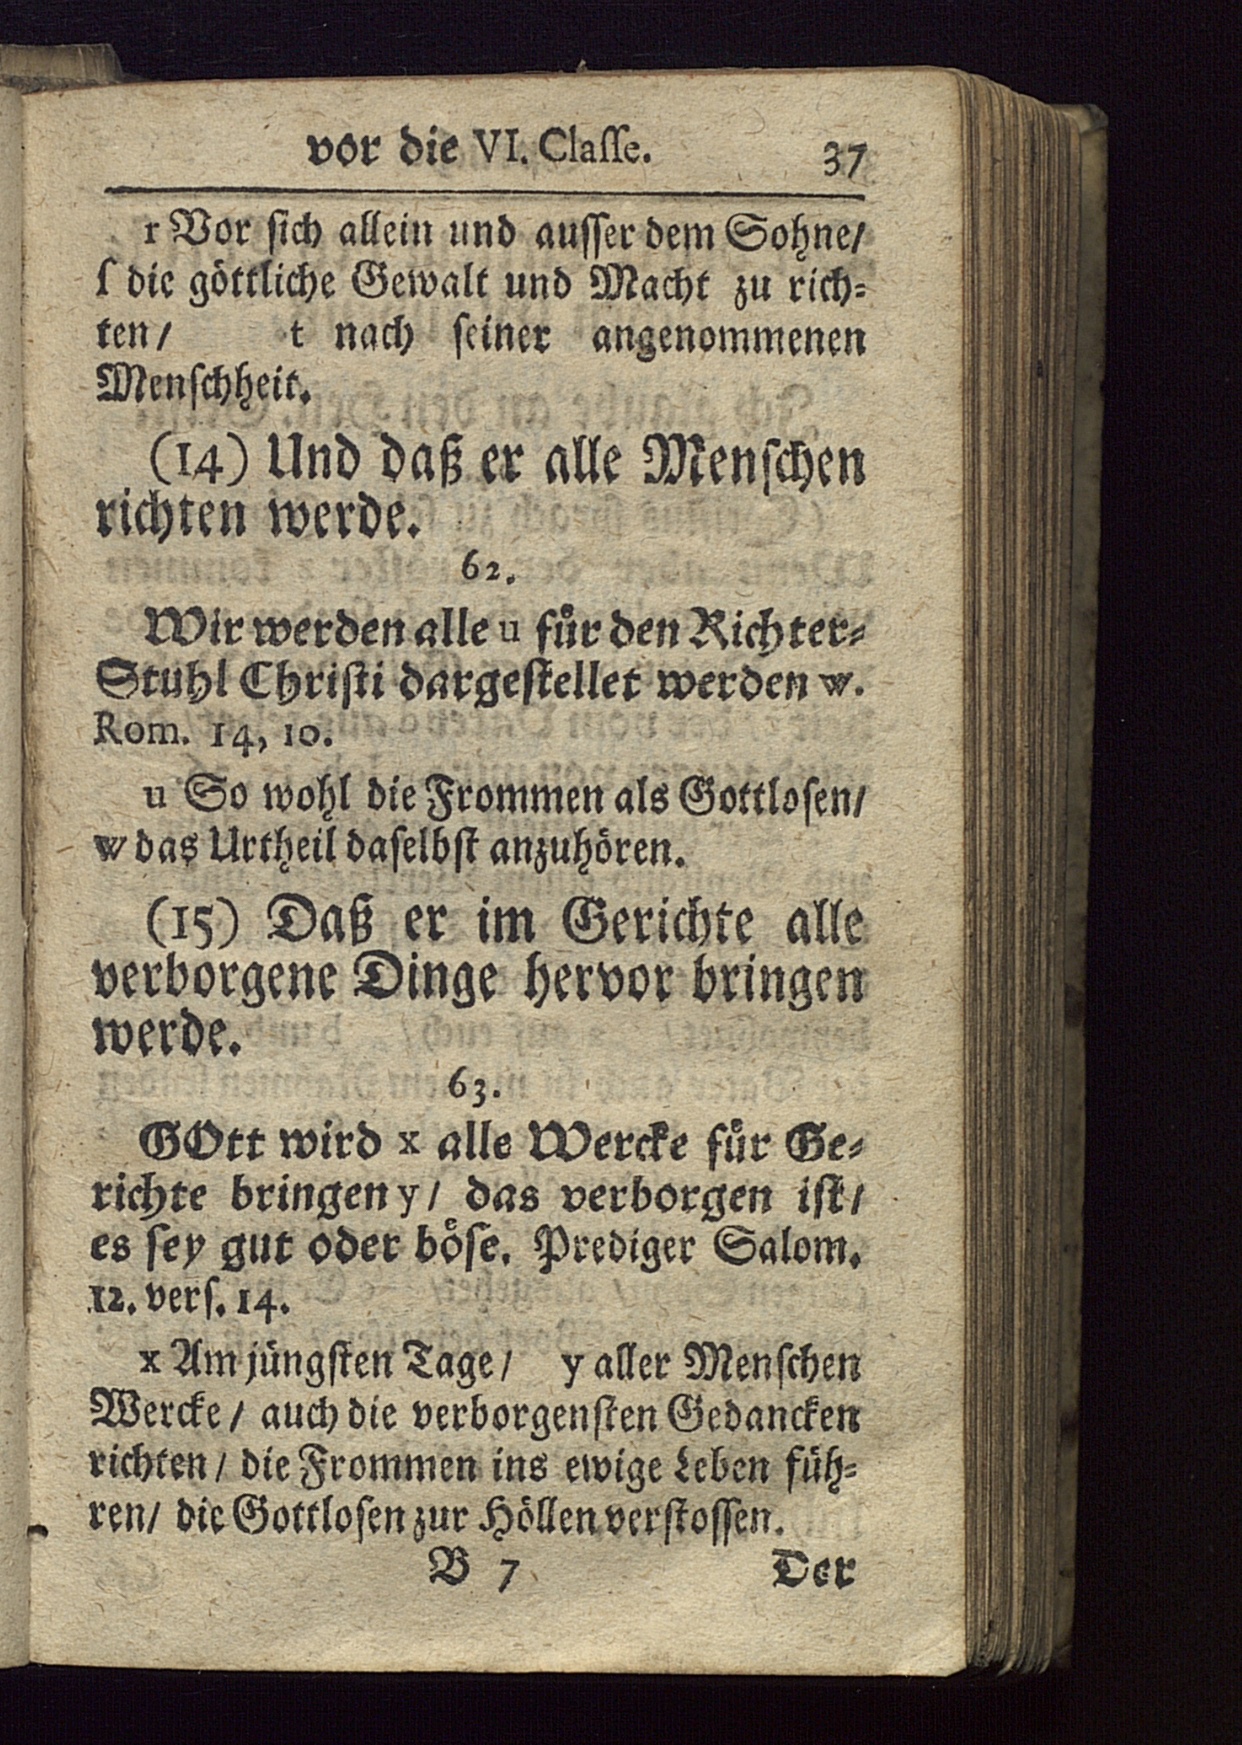 vor die VI. Classe. 37
r Vor sich allein und ausser dem Sohne/
s die göttliche Gewalt und Macht zu rich-
ten/ t nach seiner angenommenen
Menschheit.
(14) Und daß er alle Menschen
richten werde.
62.
Wir werden alle u für den Richter-
Stuhl Christi dargestellet werden w.
Rom. 14, 10.
u So wohl die Frommen als Gottlosen/
w das Urtheil daselbst anzuhören.
(15) Daß er im Gerichte alle
verborgene Dinge hervor bringen
werde.
63.
GOtt wird x alle Wercke für Ge-
richte bringen y/ das verborgen ist/
es sey gut oder böse. Prediger Salom.
12. vers. 14.
x Am jüngsten Tage/ y aller Menschen
Wercke/ auch die verborgensten Gedancken
richten/ die Frommen ins ewige Leben füh-
ren/ die Gottlosen zur Höllen verstossen.
B 7 Der